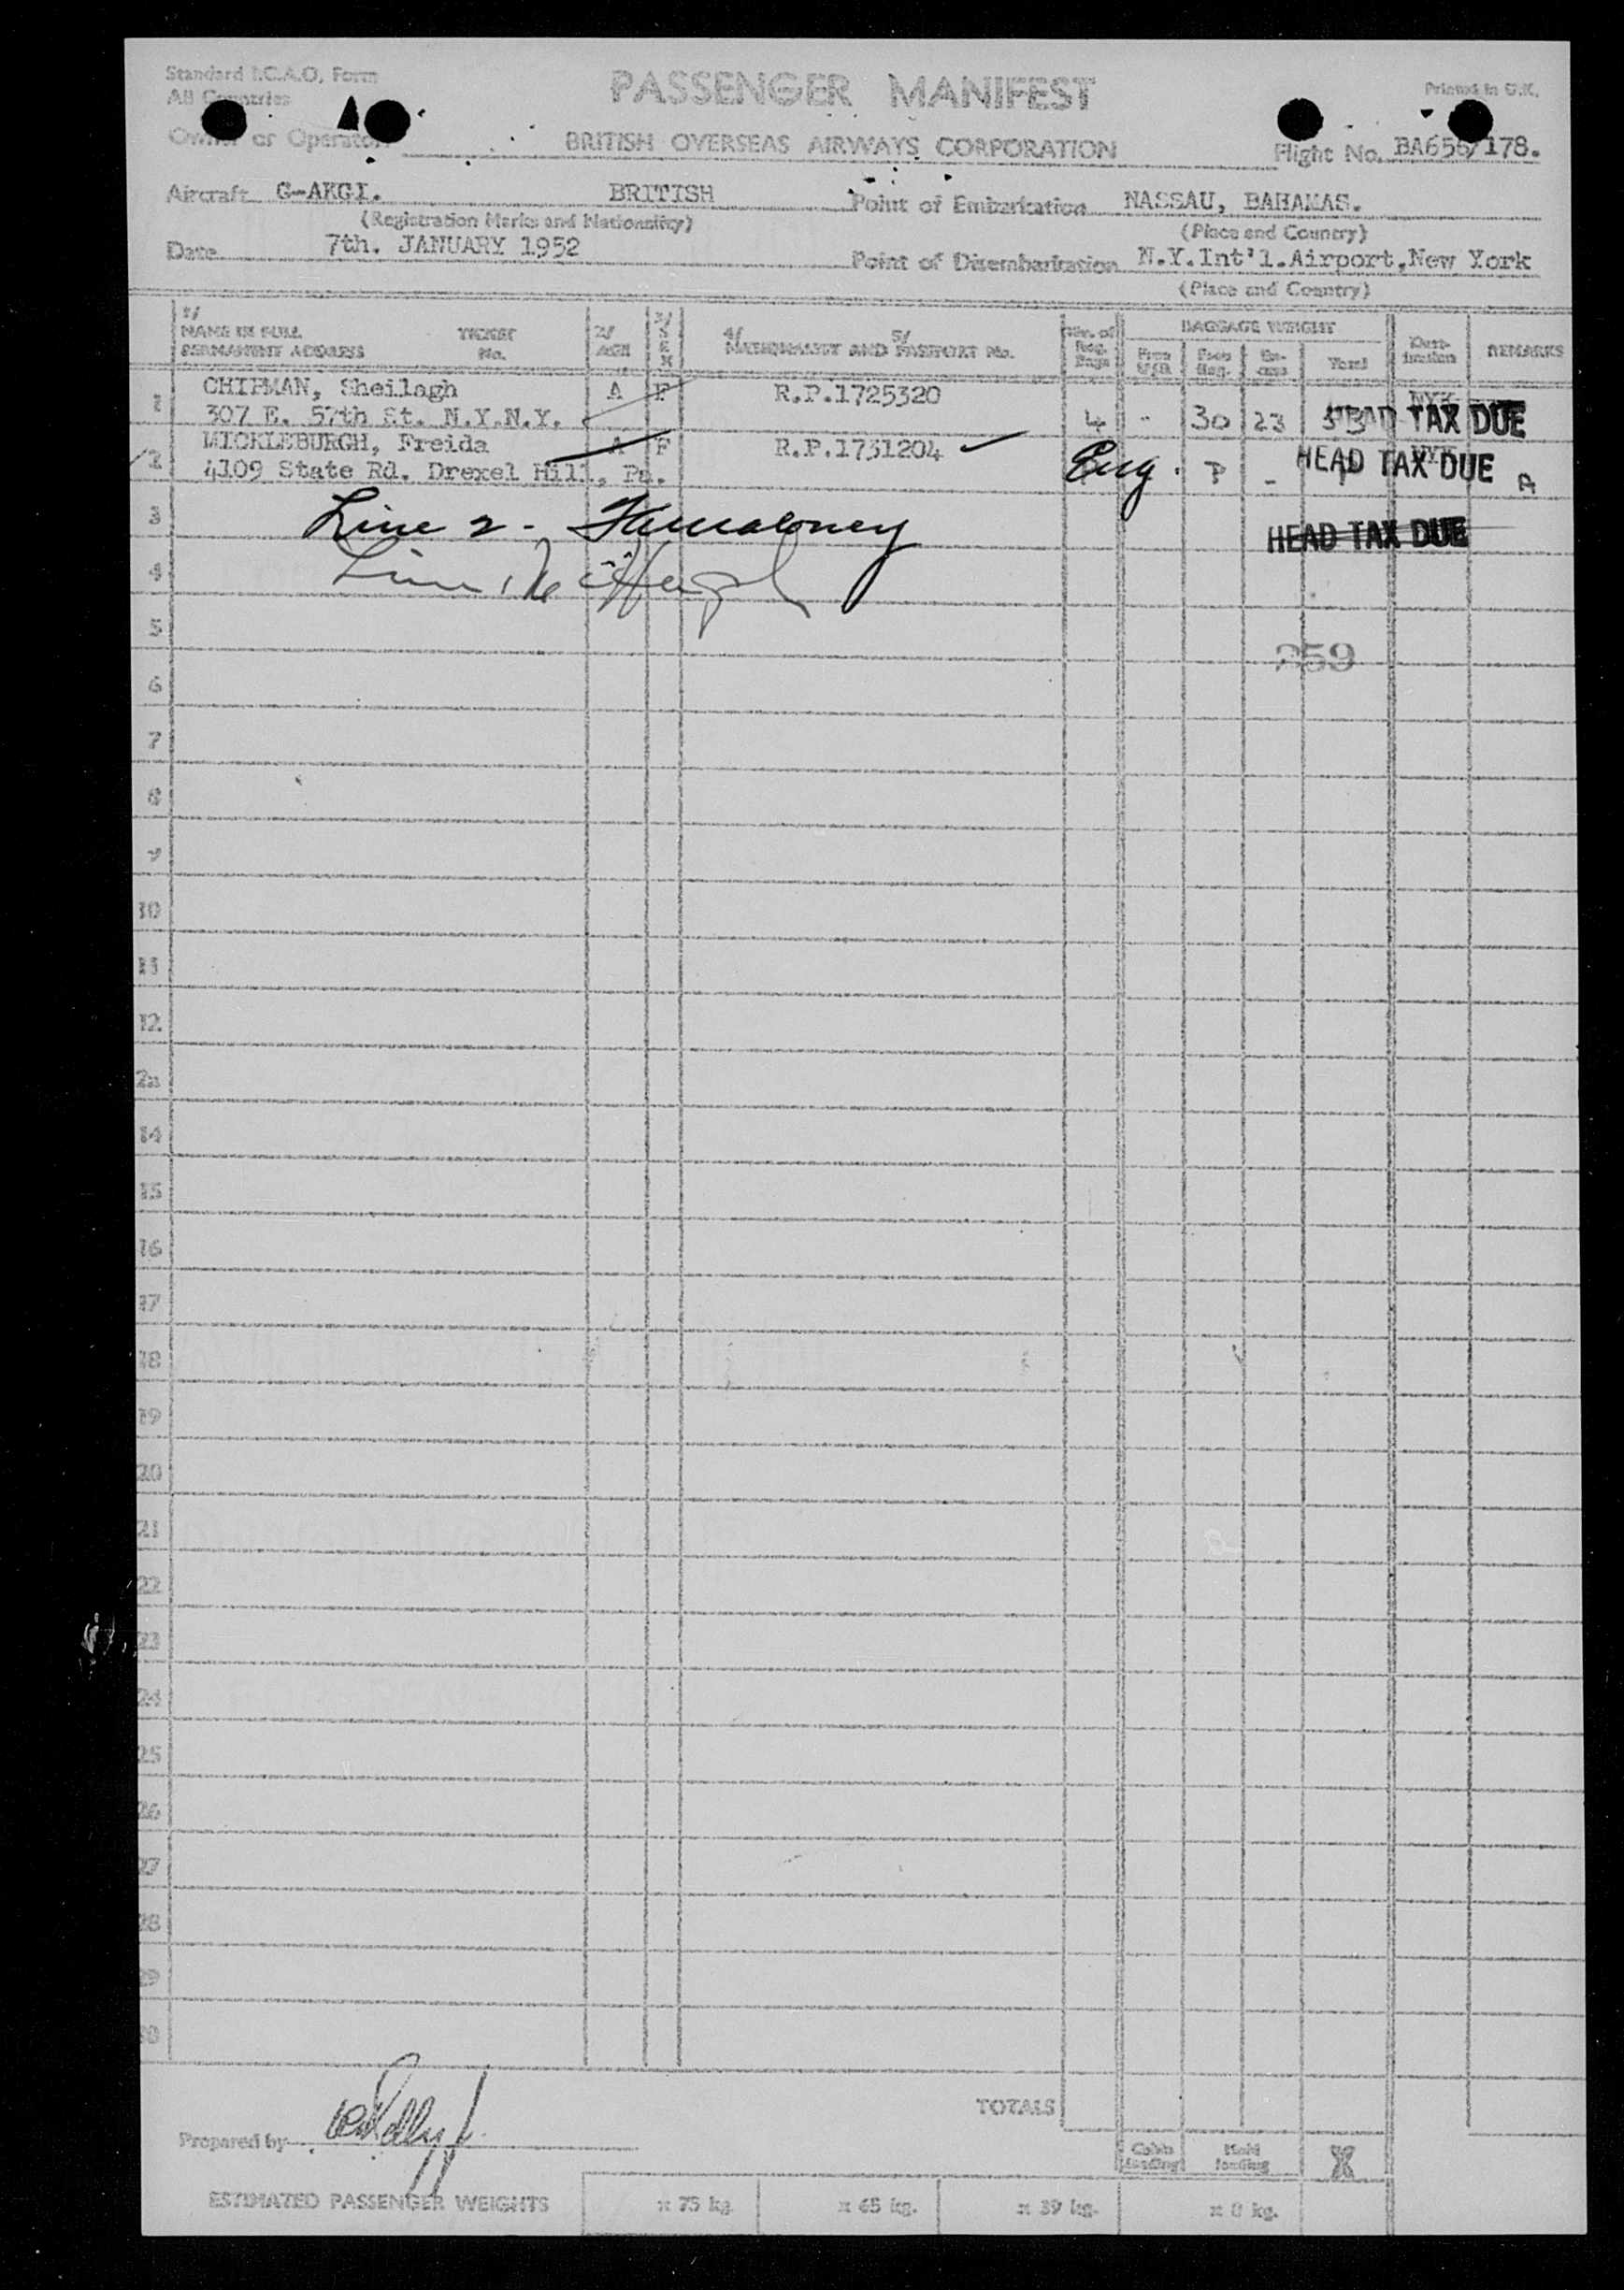 Standard I.C.A.O. Form
All Countries
PASSENGER MANIFEST
Printed in U.K.
Owner or Operator BRITISH OVERSEAS AIRWAYS CORPORATION Flight No. BA656/178.
Aircraft G-AKGI. BRITISH Point of Embarkation NASSAU, BAHAMAS.
(Registration Marks and Nationality) (Place and Country)
Date 7th. JANUARY 1952 Point of Disembarkation N.Y.Int'l.Airport,New York
(Place and Country)
1/ NAME IN FULL PERMANENT ADDRESS TICKET No. 2/ AGE 3/ SEX 4/ 5/ NATIONALITY AND PASSPORT No. No. of Reg. Bags BAGGAGE WEIGHT Free Reg. Total Destination REMARKS
1 CHIPMAN, Sheilagh A F R.P.1725320 NYK
307 E. 57th St. N.Y.N.Y. 4 - 30 23 53 HEAD TAX DUE
2 MICKLEBURGH, Freida A F R.P.1731204 NYK
4109 State Rd. Drexel Hill, Pa. Eng. P - HEAD TAX DUE A
3 Line 2 - HEAD TAX DUE
4 Line 1
5
259
6
7
8
9
10
11
12
14
15
16
17
18
19
20
21
22
23
24
25
26
27
28
29
30
TOTALS
Prepared by
Cabin loading Hold loading X
ESTIMATED PASSENGER WEIGHTS x 75 kg. x 65 kg. x 39 kg. x 8 kg.